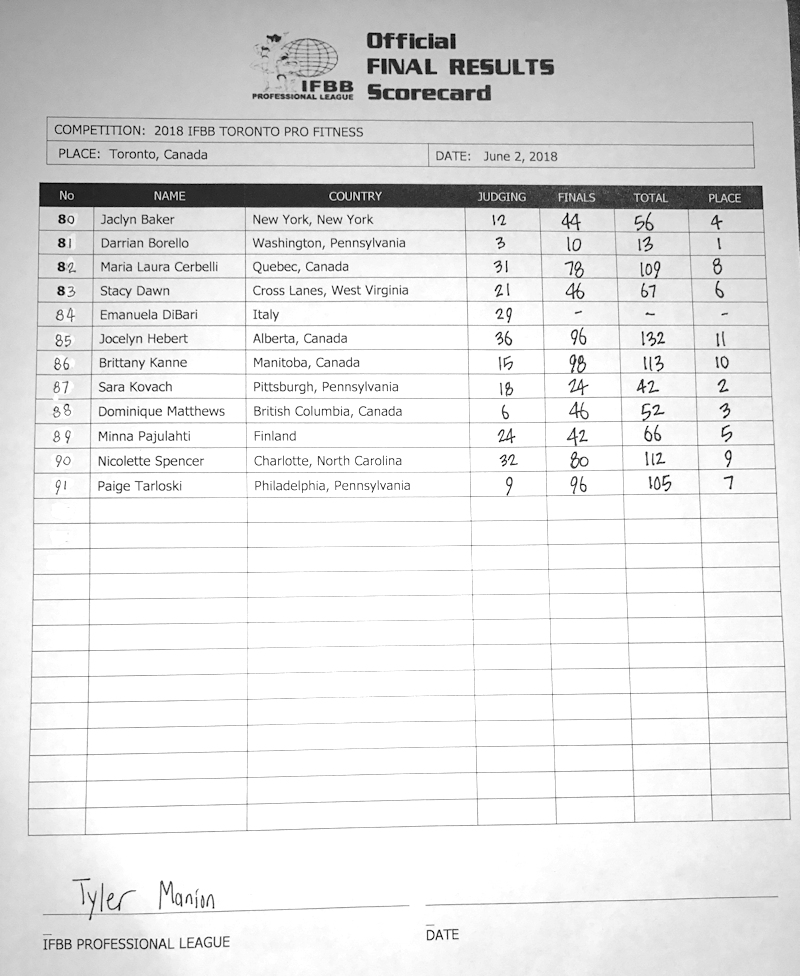 Official
FINAL RESULTS
Scorecard
IFBB
PROFESSIONAL LEAGUE
COMPETITION: 2018 IFBB TORONTO PRO FITNESS
PLACE: Toronto, Canada DATE: June 2, 2018
No NAME COUNTRY JUDGING FINALS TOTAL PLACE
80 Jaclyn Baker New York, New York 12 44 56 4
81 Darrian Borello Washington, Pennsylvania 3 10 13 1
82 Maria Laura Cerbelli Quebec, Canada 31 78 109 8
83 Stacy Dawn Cross Lanes, West Virginia 21 46 67 6
84 Emanuela DiBari Italy 29 - - -
85 Jocelyn Hebert Alberta, Canada 36 96 132 11
86 Brittany Kanne Manitoba, Canada 15 98 113 10
87 Sara Kovach Pittsburgh, Pennsylvania 18 24 42 2
88 Dominique Matthews British Columbia, Canada 6 46 52 3
89 Minna Pajulahti Finland 24 42 66 5
90 Nicolette Spencer Charlotte, North Carolina 32 80 112 9
91 Paige Tarloski Philadelphia, Pennsylvania 9 96 105 7
Tyler Manion
IFBB PROFESSIONAL LEAGUE DATE